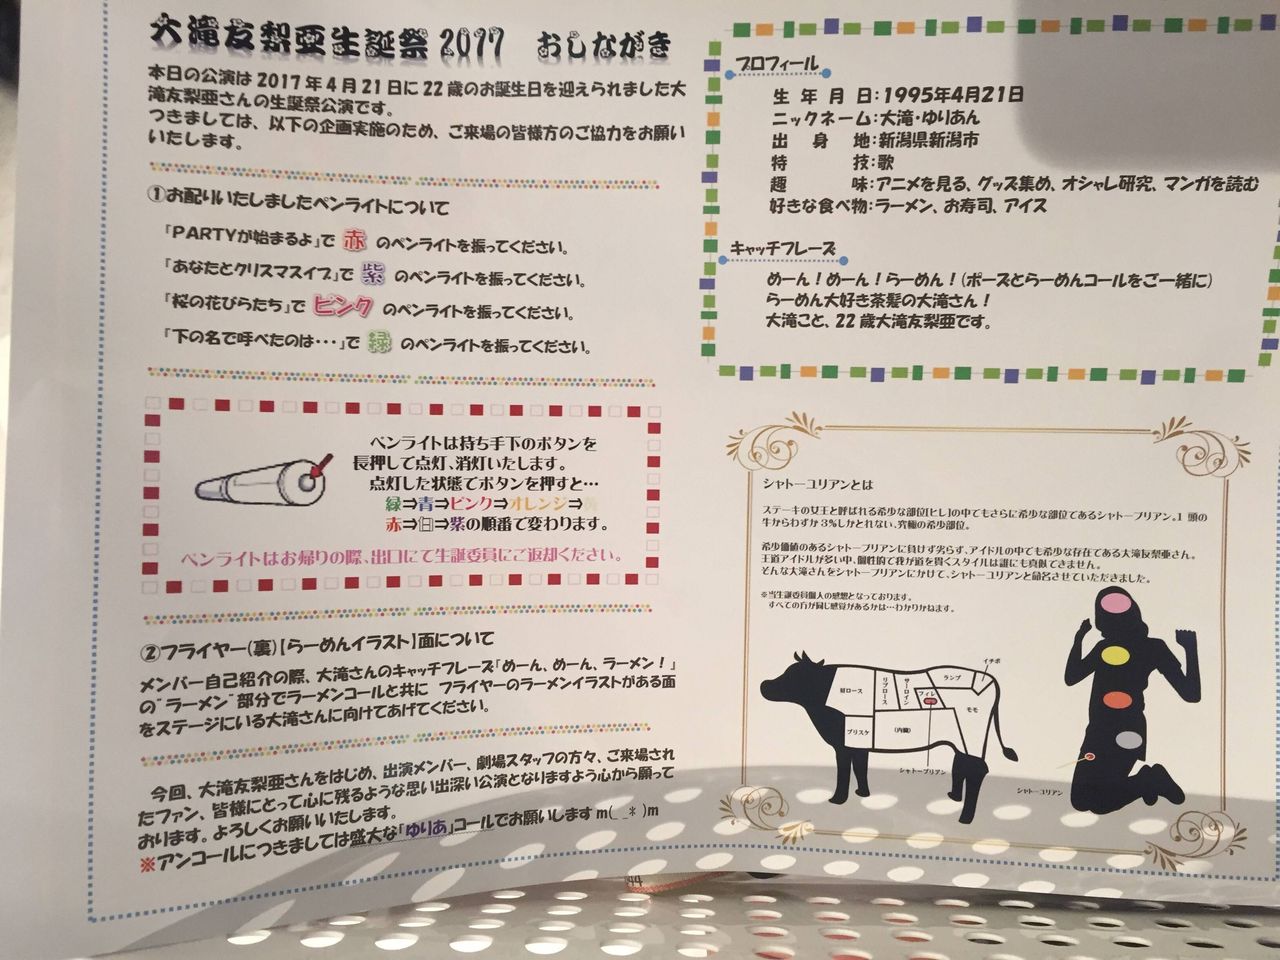 大滝友梨亜生誕祭2017　おしながき
本日の公演は2017年4月21日に22歳のお誕生日を迎えられました大
滝友梨亜さんの生誕祭公演です。
つきましては、以下の企画実施のため、ご来場の皆様方のご協力をお願い
いたします。
①お配りいたしましたペンライトについて
「PARTYが始まるよ」で 赤 のペンライトを振ってください。
「あなたとクリスマスイブ」で 紫 のペンライトを振ってください。
「桜の花びらたち」で ピンク のペンライトを振ってください。
「下の名で呼べたのは・・・」で 緑 のペンライトを振ってください。
ペンライトは持ち手下のボタンを
長押しして点灯、消灯いたします。
点灯した状態でボタンを押すと…
緑⇒青⇒ピンク⇒オレンジ⇒
赤⇒白⇒紫の順番で変わります。
ペンライトはお帰りの際、出口にて生誕委員にご返却ください。
②フライヤー(裏)【らーめんイラスト】面について
メンバー自己紹介の際、大滝さんのキャッチフレーズ「めーん、めーん、ラーメン！」
の“ラーメン”部分でラーメンコールと共に フライヤーのラーメンイラストがある面
をステージにいる大滝さんに向けてあげてください。
今回、大滝友梨亜さんをはじめ、出演メンバー、劇場スタッフの方々、ご来場され
たファン、皆様にとって心に残るような思い出深い公演となりますよう心から願って
おります。よろしくお願いいたします。
※アンコールにつきましては盛大な「ゆりあ」コールでお願いします m(_ _*)m
プロフィール
生年月日：1995年4月21日
ニックネーム：大滝・ゆりあん
出身地：新潟県新潟市
特技：歌
趣味：アニメを見る、グッズ集め、オシャレ研究、マンガを読む
好きな食べ物：ラーメン、お寿司、アイス
キャッチフレーズ
めーん！めーん！らーめん！(ポーズとらーめんコールをご一緒に)
らーめん大好き茶髪の大滝さん！
大滝こと、22歳大滝友梨亜です。
シャトーユリアンとは
ステーキの女王と呼ばれる希少な部位[ヒレ]の中でもさらに希少な部位であるシャトーブリアン。1頭の
牛からわずか3%しかとれない、究極の希少部位。
希少価値のあるシャトーブリアンに負けず劣らず、アイドルの中でも希少な存在である大滝友梨亜さん。
王道アイドルが多い中、個性的で我が道を貫くスタイルは誰にも真似できません。
そんな大滝さんをシャトーブリアンにかけて、シャトーユリアンと命名させていただきました。
※当生誕委員個人の感想となっております。
すべての方が同じ感覚があるかは…わかりかねます。
肩ロース
リブロース
サーロイン
フィレ
ランプ
イチボ
モモ
ブリスケ
(内臓)
シャトーブリアン
シャトーユリアン